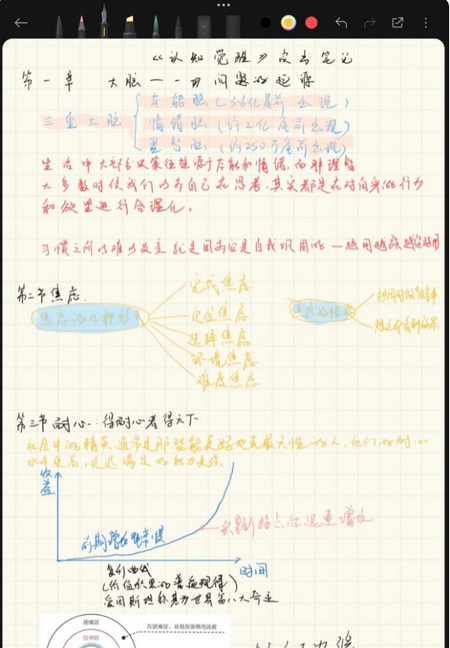 《认知觉醒》读书笔记
第一章 大脑——一切问题的起源
三重大脑
本能脑(3.6亿年前出现)
情绪脑(约2亿年前出现)
理智脑(约250万年前出现)
生活中大部分决策往往源于本能和情绪,而非理智
大多数时候我们以为自己在思考,其实都是在对自身的行为
和欲望进行合理化。
习惯之所以难以改变,就是因为它是自我巩固的——越用越强,越强越用
第二节 焦虑
焦虑的几种形式
完成焦虑
定位焦虑
选择焦虑
环境焦虑
难度焦虑
焦虑的根源
想同时做很多事
想立即看到效果
第三节 耐心:得耐心者得天下
社会中的精英通常是那些能更好地克服天性的人,他们的耐心
水平更高,延迟满足的能力更强
收益
前期增长非常慢
到拐点后迅速增长
时间
复利曲线
(价值积累的普遍规律)
爱因斯坦称其为世界第八大奇迹
困难区
拉伸区
在困难区,容易因畏惧而逃避